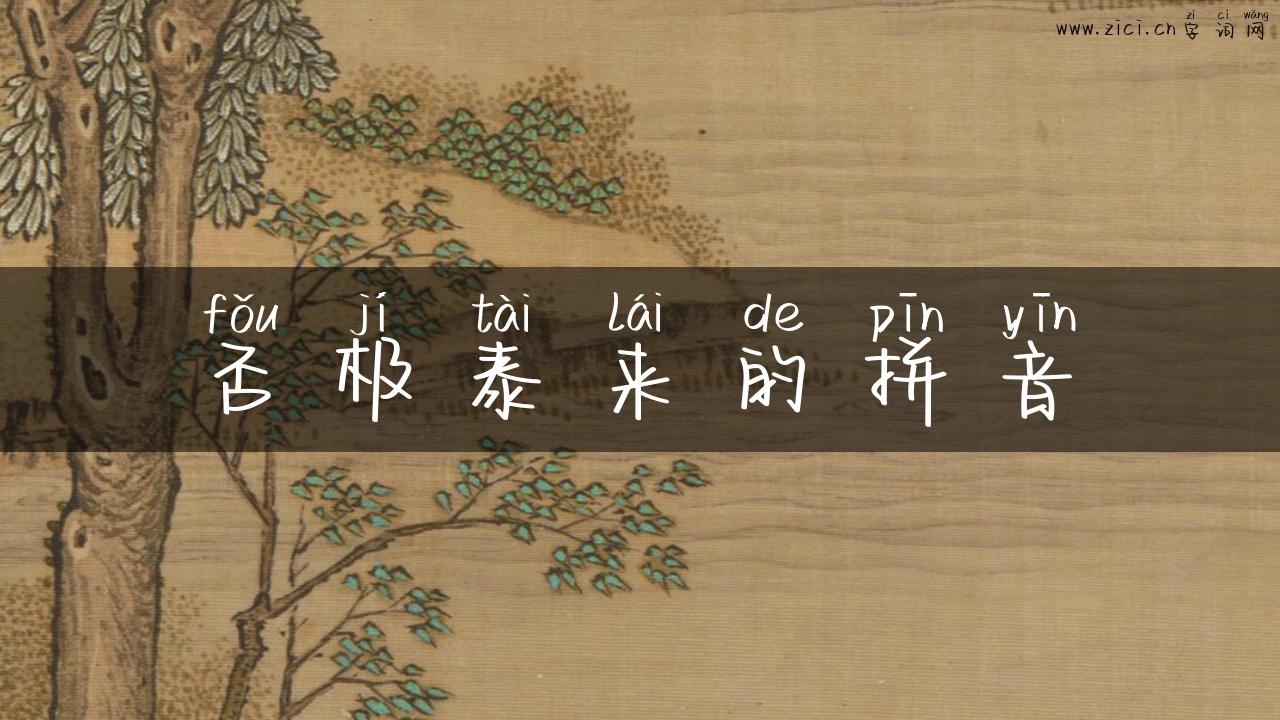 zì cí wǎng
www.zici.cn 字词网
fǒu jí tài lái de pīn yīn
否极泰来的拼音